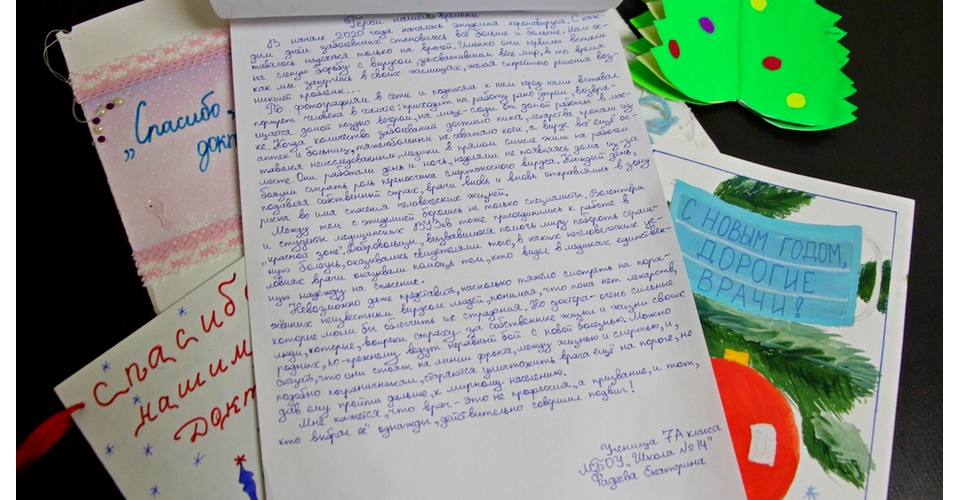 Герои нашего времени
В начале 2020 года началась эпидемия коронавируса. С каж-
дым днём заболевших становилось всё больше и больше. Нам ос-
тавалось надеяться только на врачей. Именно они первыми встали
на слепую борьбу с вирусом, захватившим весь мир, в то время
как мы заперлись в своих жилищах, желая скорейшего решения воз-
никшей проблемы...
По фотографиям в сети и подписям к ним перед нами вставал
портрет человека в халате: приходит на работу рано утром, возвра-
щается домой поздно вечером, на лице-следы от долгой работы в мас-
ке. Когда количество заболеваний достигло пика, лекарства пропали из
аптек и больниц, тяжелобольным не хватало коек, а вирус всё ещё ос-
тавался неисследованным, медики в прямом смысле жили на рабочем
месте. Они работали день и ночь, неделями не появляясь дома из-за
боязни сыграть роль переносчика смертоносного вируса. Каждый день,
подавляя собственный страх, врачи вновь и вновь отправлялись в зону
риска во имя спасения человеческих жизней.
Между тем с эпидемией боролись не только специалисты. Волонтёры
и студенты медицинских ВУЗов тоже присоединились к работе в
„красной зоне". Добровольцы, вызвавшиеся помочь миру побороть страш-
ную болезнь, оказывались свидетелями того, в каких нечеловеческих ус-
ловиях врачи оказывали помощь тем, кто видел в медиках единствен-
ную надежду на спасение.
Невозможно даже представить, насколько тяжело смотреть на пора-
жённых неизвестным вирусом людей, понимая, что пока нет лекарств,
которые могли бы облегчить их страдания. Но доктора - очень сильные
люди, которые, вопреки страху за собственные жизни и жизни своих
родных, по-прежнему ведут неравный бой с новой болезнью. Можно
сказать, что они стоят на линии фронта, между жизнью и смертью, и,
подобно пограничникам, стараются уничтожить врага ещё на пороге, не
дав ему пройти дальше, к мирному населению.
Мне кажется, что врач - это не профессия, а призвание, и тот,
кто выбрал её однажды, действительно совершил подвиг!
Ученица 7А класса
МБОУ „Школа №14"
Фадеева Екатерина
„Спасибо,
докт
СПАСИБО
нашим
Докт
С НОВЫМ ГОДОМ,
ДОРОГИЕ
ВРАЧИ!